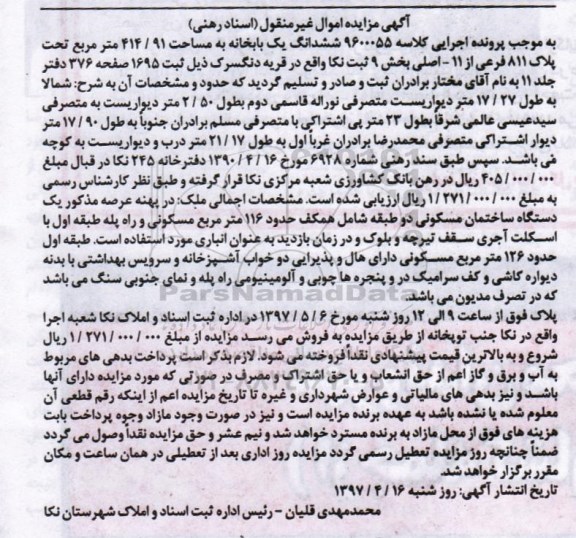 آگهی مزایده اموال غیرمنقول (اسناد رهنی)
به موجب پرونده اجرایی کلاسه ۹۶۰۰۰۵۵ ششدانگ یک بابخانه به مساحت ۹۱ / ۴۱۴ متر مربع تحت
پلاک ۸۱۱ فرعی از ۱۱ - اصلی بخش ۹ ثبت نکا واقع در قریه دنگسرک ذیل ثبت ۱۶۹۵ صفحه ۳۷۶ دفتر
جلد ۱۱ به نام آقای مختار برادران ثبت و صادر و تسلیم گردید که حدود و مشخصات آن به شرح: شمالا
به طول ۲۷ / ۱۷ متر دیواریست متصرفی نوراله قاسمی دوم بطول ۵۰ / ۲ متر دیواریست به متصرفی
سیدهیسی عالمی شرقاً بطول ۲۳ متر پی اشتراکی با متصرفی مسلم برادران جنوباً به طول ۹۰ / ۱۷ متر
دیوار اشتراکی متصرفی محمدرضا برادران غرباً اول به طول ۱۷ / ۲۱ متر درب و دیواریست به کوچه
می باشد. سپس طبق سند رهنی شماره ۶۹۲۸ مورخ ۱۶ / ۴ / ۱۳۹۰ دفترخانه ۲۴۵ نکا در قبال مبلغ
۰۰۰ / ۰۰۰ / ۴۰۵ ریال در رهن بانک کشاورزی شعبه مرکزی نکا قرار گرفته و طبق نظر کارشناس رسمی
به مبلغ ۰۰۰ / ۰۰۰ / ۲۷۱ / ۱ ریال ارزیابی شده است. مشخصات اجمالی ملک: در پهنه عرصه مذکور یک
دستگاه ساختمان مسکونی دو طبقه شامل همکف حدود ۱۱۶ متر مربع مسکونی و راه پله طبقه اول با
اسکلت آجری سقف تیرچه و بلوک و در زمان بازدید به عنوان انباری مورد استفاده است. طبقه اول
حدود ۱۲۶ متر مربع مسکونی دارای هال و پذیرایی دو خواب آشپزخانه و سرویس بهداشتی با بدنه
دیواره کاشی و کف سرامیک در و پنجره ها چوبی و آلومینیومی راه پله و نمای جنوبی سنگ می باشد
که در تصرف مدیون می باشد.
پلاک فوق از ساعت ۹ الی ۱۲ روز شنبه مورخ ۶ / ۵ / ۱۳۹۷ در اداره ثبت اسناد و املاک نکا شعبه اجرا
واقع در نکا جنب توپخانه از طریق مزایده به فروش می رسد مزایده از مبلغ ۰۰۰ / ۰۰۰ / ۲۷۱ / ۱ ریال
شروع و به بالاترین قیمت پیشنهادی نقداً فروخته می شود. لازم بذکر است پرداخت بدهی های مربوط
به آب و برق و گاز اعم از حق انشعاب و یا حق اشتراک و مصرف در صورتی که مورد مزایده دارای آنها
باشد و نیز بدهی های مالیاتی و عوارض شهرداری و غیره تا تاریخ مزایده اعم از اینکه رقم قطعی آن
معلوم شده یا نشده باشد به عهده برنده مزایده است و نیز در صورت وجود مازاد وجوه پرداخت بابت
هزینه های فوق از محل مازاد به برنده مسترد خواهد شد و نیم عشر و حق مزایده نقداً وصول می گردد
ضمناً چنانچه روز مزایده تعطیل رسمی گردد مزایده روز اداری بعد از تعطیلی در همان ساعت و مکان
مقرر برگزار خواهد شد.
تاریخ انتشار آگهی: روز شنبه ۱۶ / ۴ / ۱۳۹۷
محمدمهدی قلیان - رئیس اداره ثبت اسناد و املاک شهرستان نکا
ParsNamadData